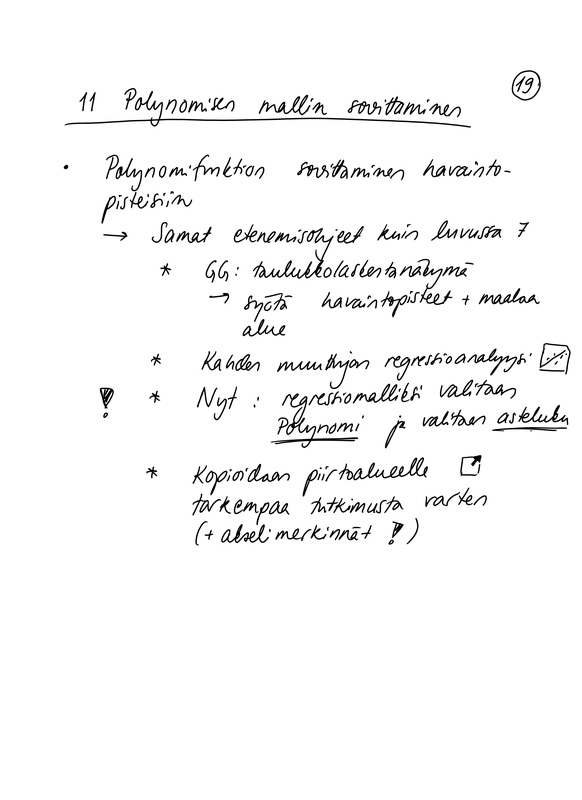 19
11 Polynomisen mallin sovittaminen
• Polynomifunktion sovittaminen havainto-
pisteisiin
→ Samat etenemisohjeet kuin luvussa 7
* GG: taulukkolaskentanäkymä
→ syötä havaintopisteet + maalaa
alue
* Kahden muuttujan regressioanalyysi
! * Nyt : regressiomalliksi valitaan
Polynomi ja valitaan asteluku
* Kopioidaan piirtoalueelle
tarkempaa tutkimusta varten
(+ akselimerkinnät ! )